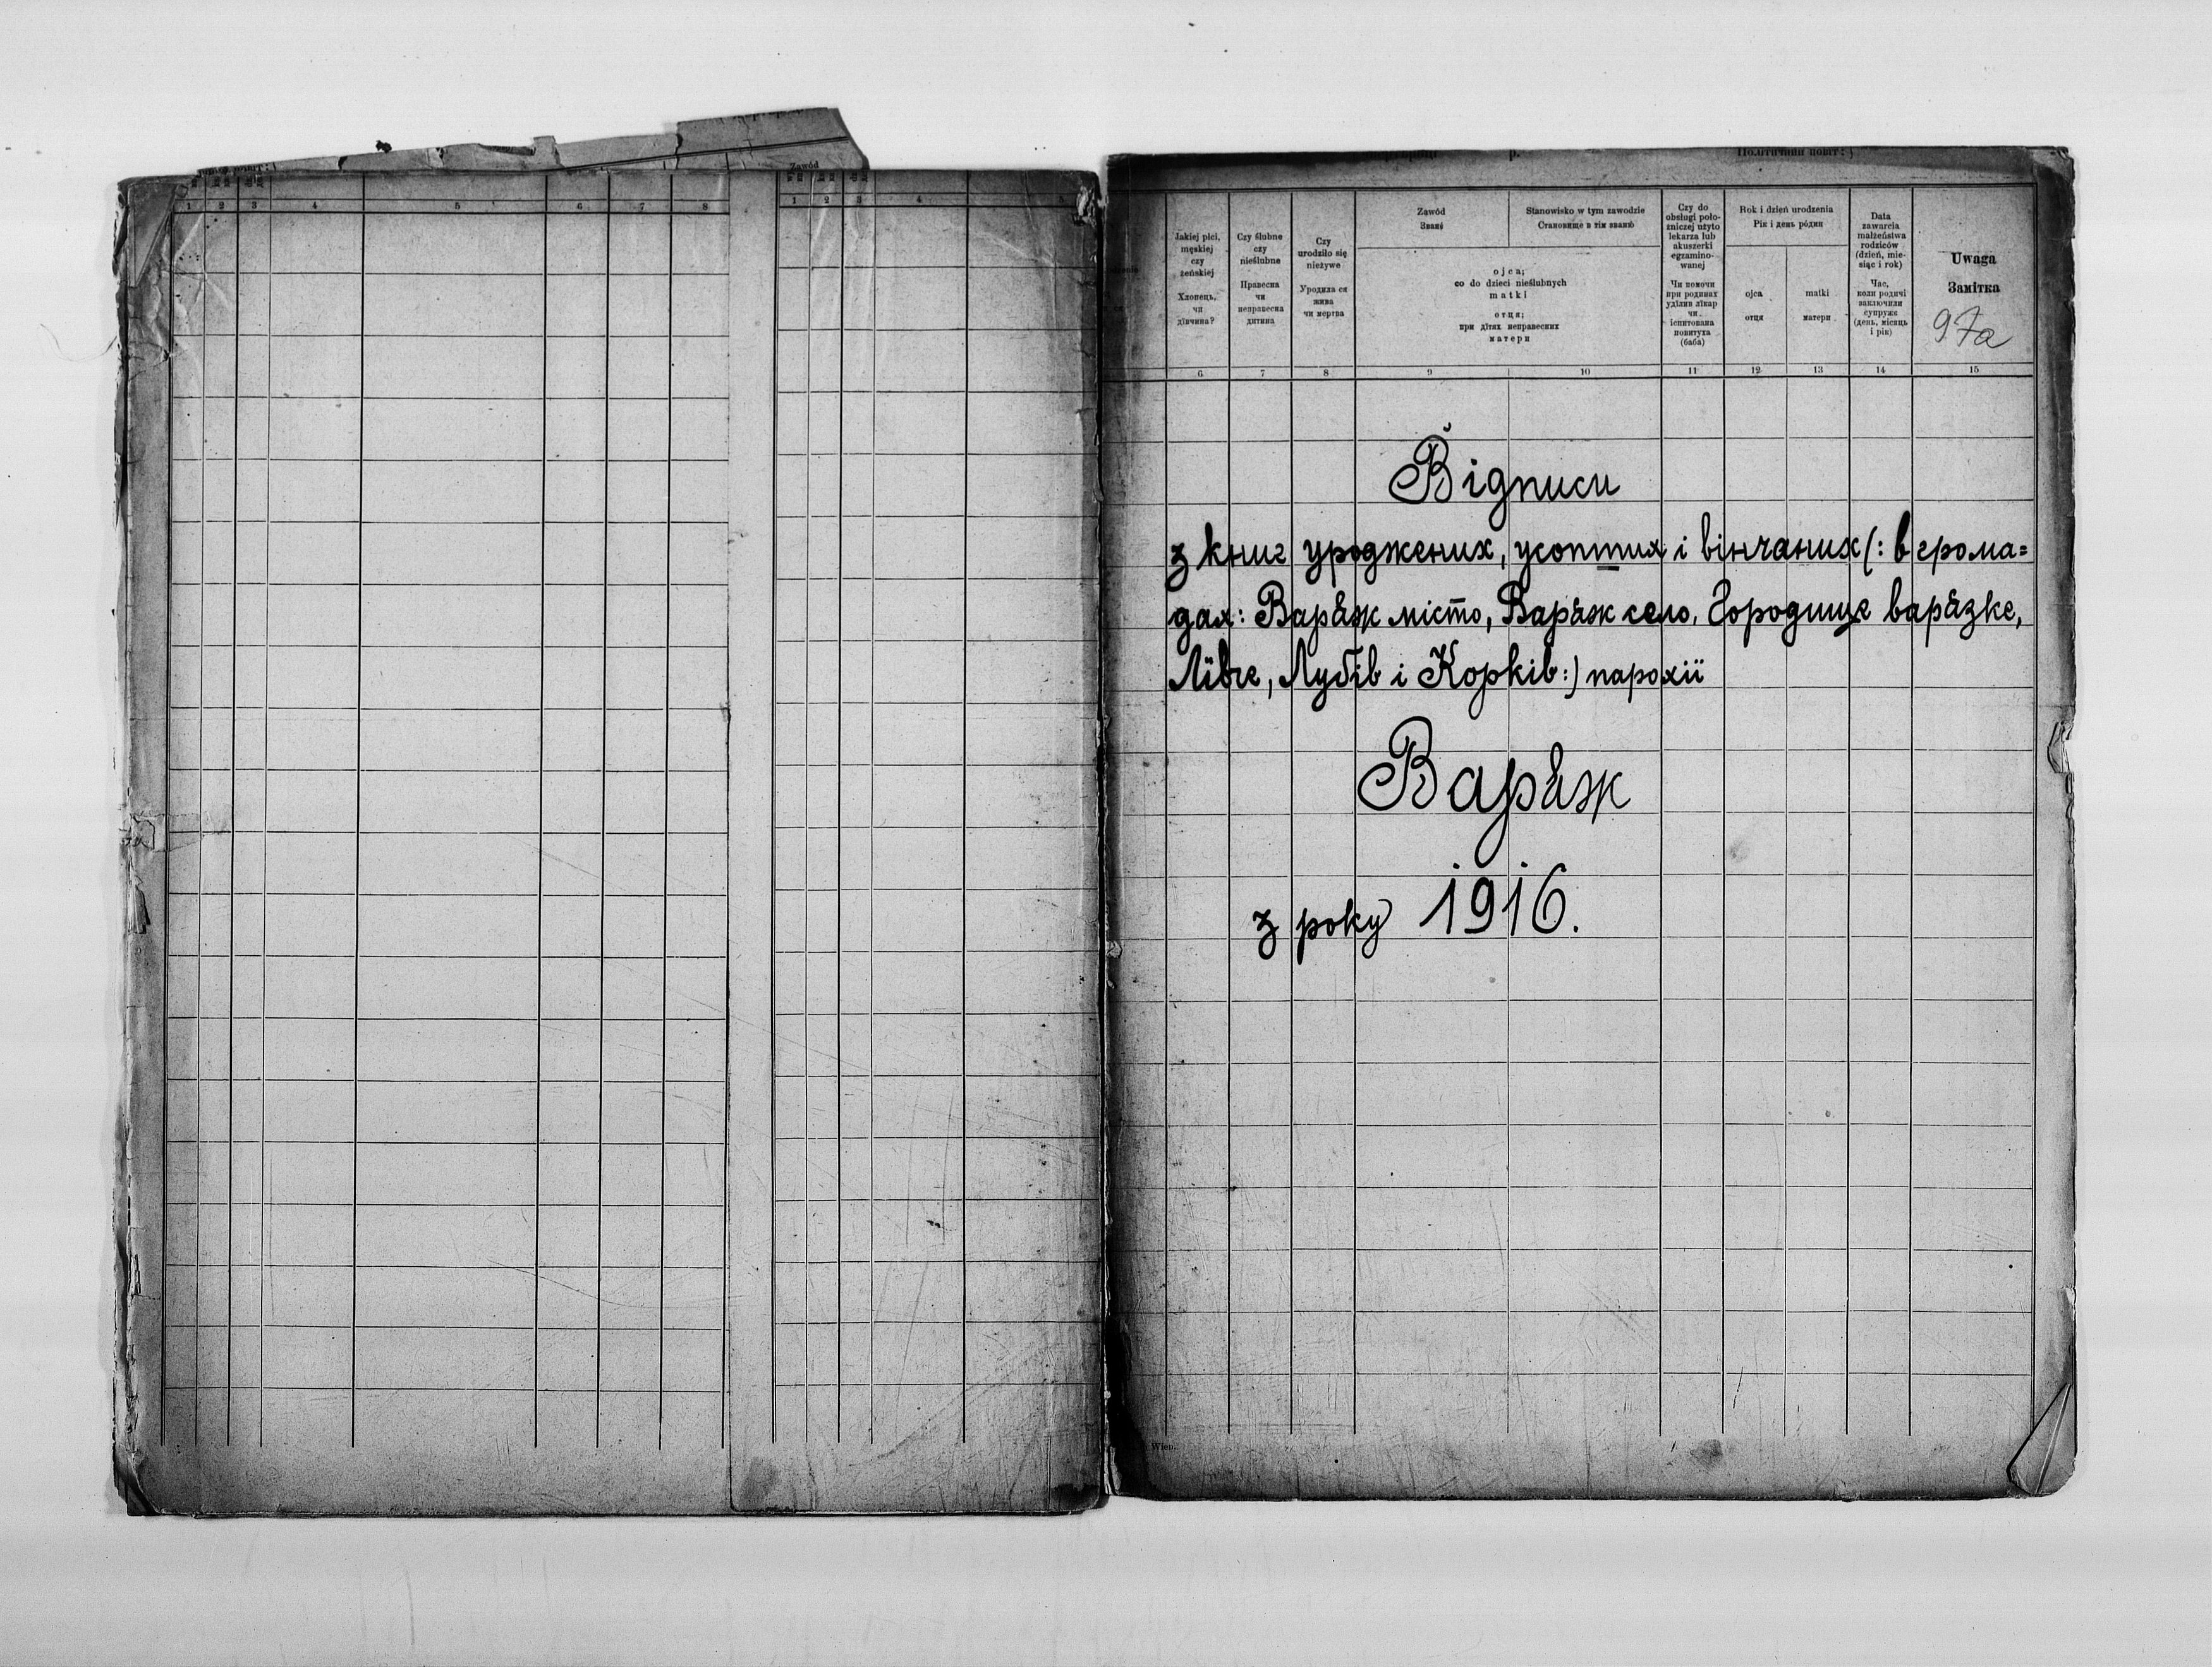 1 2 3 4 5 6 7 8
Zawód
1 2 3 4 5
Політичний повіт:
Jakiej płci,
męskiej
czy
żeńskiej
Хлопець,
чи
дївчина?
Czy ślubne
czy
nieślubne
Правесна
чи
неправесна
дитина
Czy
urodziło się
nieżywe
Уродила ся
жива
чи мертва
Zawód
Званє
Stanowisko w tym zawodzie
Становище в тім званю
ojca;
co do dzieci nieślubnych
matki
отця;
при дїтях неправесних
матери
Czy do
obsługi poło-
żniczej użyto
lekarza lub
akuszerki
egzamino-
wanej
Чи помочи
при родинах
удїлив лїкар
чи
іспитована
повитуха
(баба)
Rok i dzień urodzenia
Рік і день родин
ojca
отця
matki
матери
Data
zawarcia
małżeństwa
rodziców
(dzień, mie-
siąc i rok)
Час,
коли родичі
заключили
супруже
(день, місяць
і рік)
Uwaga
Замітка
97а
6 7 8 9 10 11 12 13 14 15
Відписи
з книг уроджених, усопших і вінчаних (: в грома=
дах: Варяж місто, Варяж село, Городище варязке,
Лївче, Лубів і Корків :) парохії
Варяж
з року 1916.
Wien.